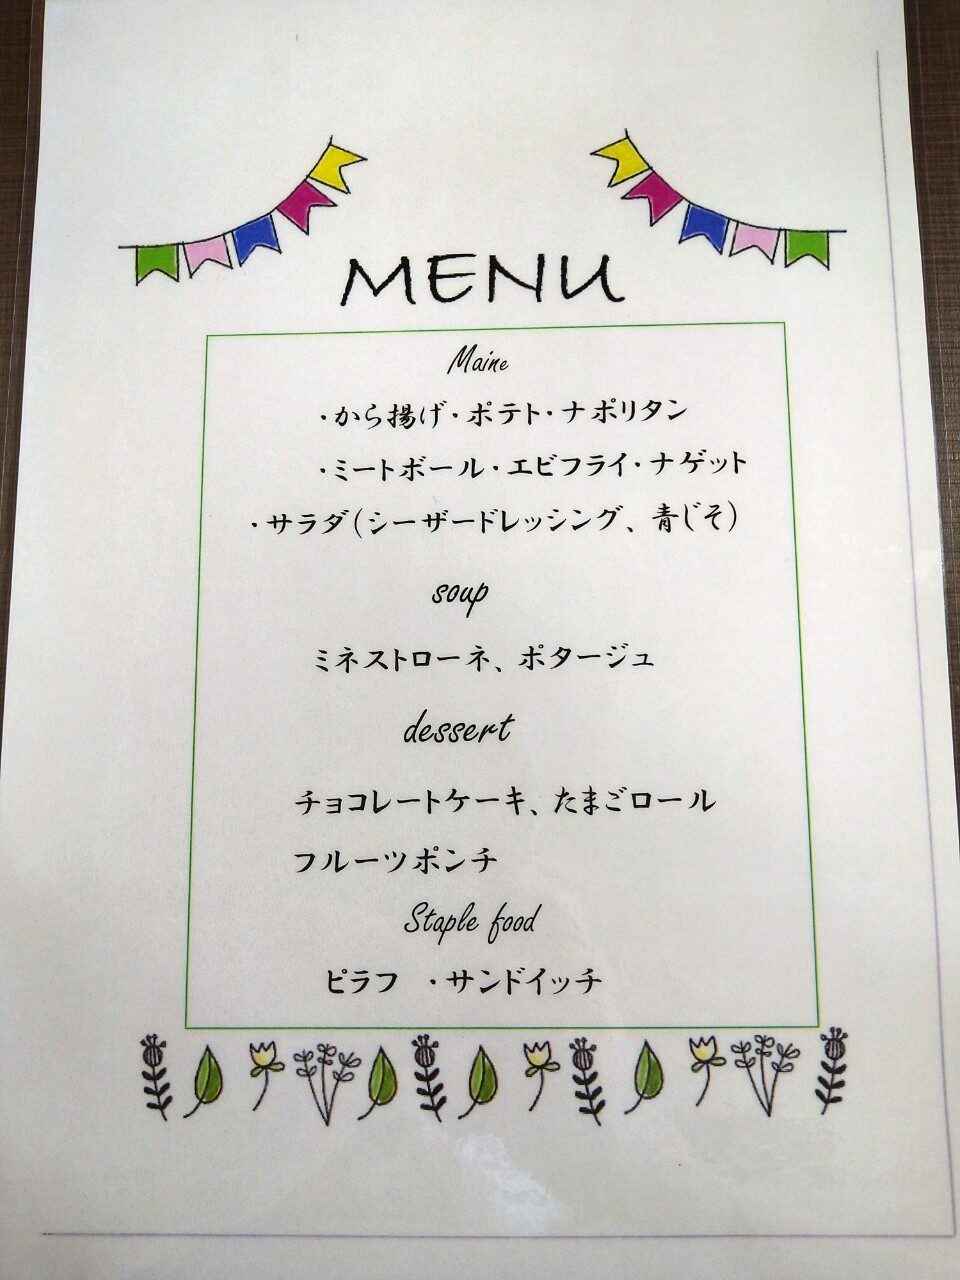 MENU
Maine
・から揚げ・ポテト・ナポリタン
・ミートボール・エビフライ・ナゲット
・サラダ(シーザードレッシング、青じそ)
soup
ミネストローネ、ポタージュ
dessert
チョコレートケーキ、たまごロール
フルーツポンチ
Staple food
ピラフ ・サンドイッチ